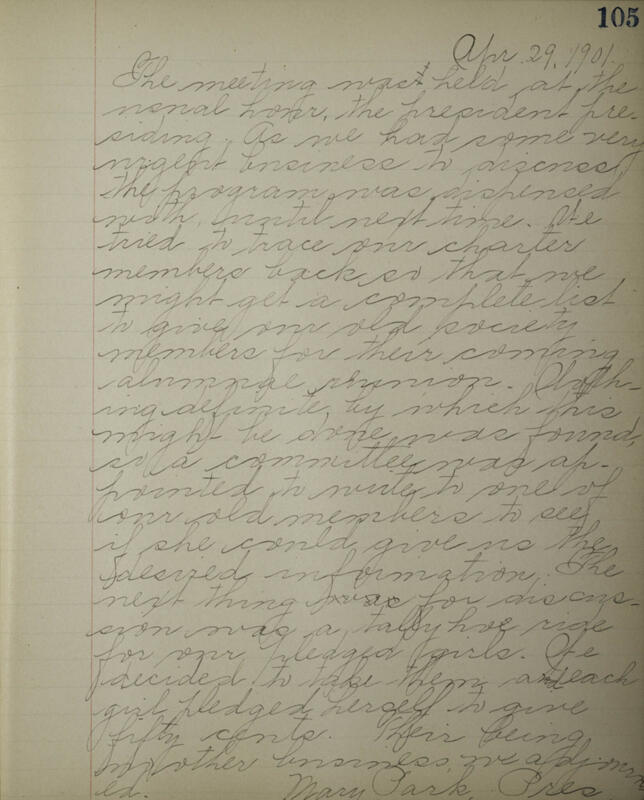 105
Apr. 29, 1901.
The meeting was held at the
usual hour, the president pre-
siding. As we had some very
urgent business to discuss,
the program was dispensed
with, until next time. We
tried to trace our charter
members back so that we
might get a complete list
to give our old society
members for their coming
alumnae reunion. Noth-
ing definite, by which this
might be done, was found,
so a committee was ap-
pointed to write to one of
our old members to see
if she could give us the
desired information. The
next thing for discus-
sion was a tallyhoe ride
for our pledged girls. We
decided to take them and each
girl pledged herself to give
fifty cents. Their being
no other business, we adjourn
ed. Mary Park, Pres.